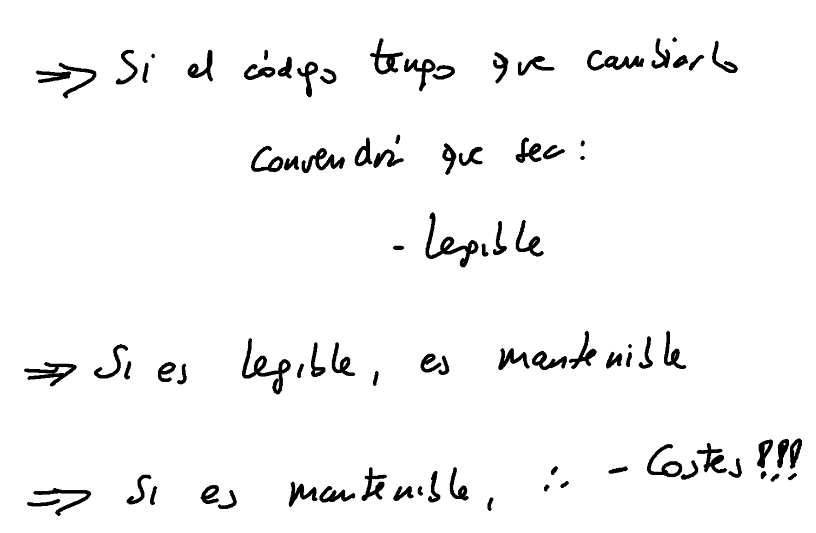 ⇒ Si el código tengo que cambiarlo
convendrá que sea:
- legible
⇒ Si es legible, es mantenible
⇒ Si es mantenible, ∴ - Costes!!!